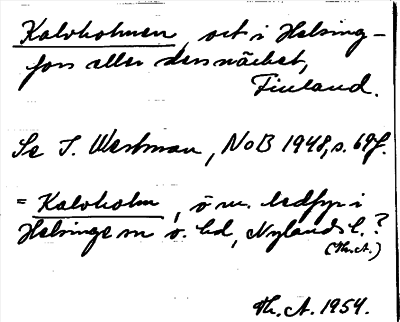 Kalvholmen, ort i Helsing-
fors eller dess närhet,
Finland.
Se I. Westman, NoB 1948, s. 69f.
= Kalvholm, ö m. ledfyr i
Helsinge sn o. hd, Nylands l.?
(Th.A.)
Th. A. 1954.